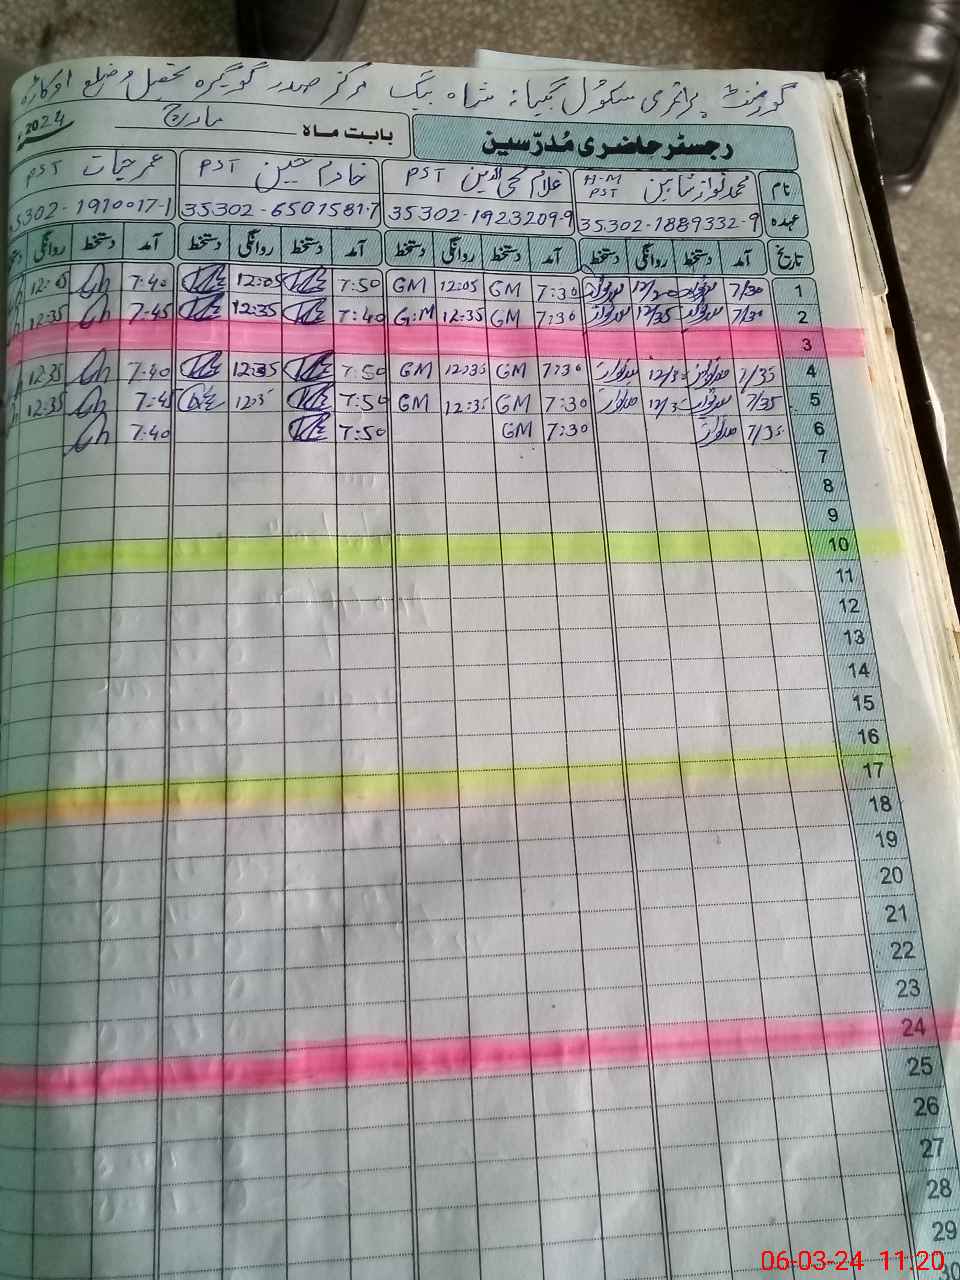 گورنمنٹ پرائمری سکول بگیانہ شاہ بیگ مرکز صدر گوگیرہ تحصیل و ضلع اوکاڑہ
رجسٹر حاضری مُدرّسین بابت ماہ مارچ 2024
نام محمد نواز شاہین H-M PST غلام محی الدین PST خادم حسین PST عمر حیات PST
عہدہ 35302-1889332-9 35302-1923209-9 35302-6501581-7 5302-1910017-1
تاریخ آمد دستخط روانگی دستخط آمد دستخط روانگی دستخط آمد دستخط روانگی دستخط آمد دستخط روانگی
1 7/30 7:30 GM 12:05 GM 7:50 12:05 7:40 12:05
2 7/30 12/35 7:30 GM 12:35 G:M 7:40 12:35 7:45 12:35
3
4 7/35 7:30 GM 12:35 GM 7:50 12:35 7:40 12:35
5 7/35 7:30 GM 12:35 GM 7:50 7:45 12:35
6 7/35 7:30 GM 7:50 7:40
7
8
9
10
11
12
13
14
15
16
17
18
19
20
21
22
23
24
25
26
27
28
29
30
06-03-24 11:20